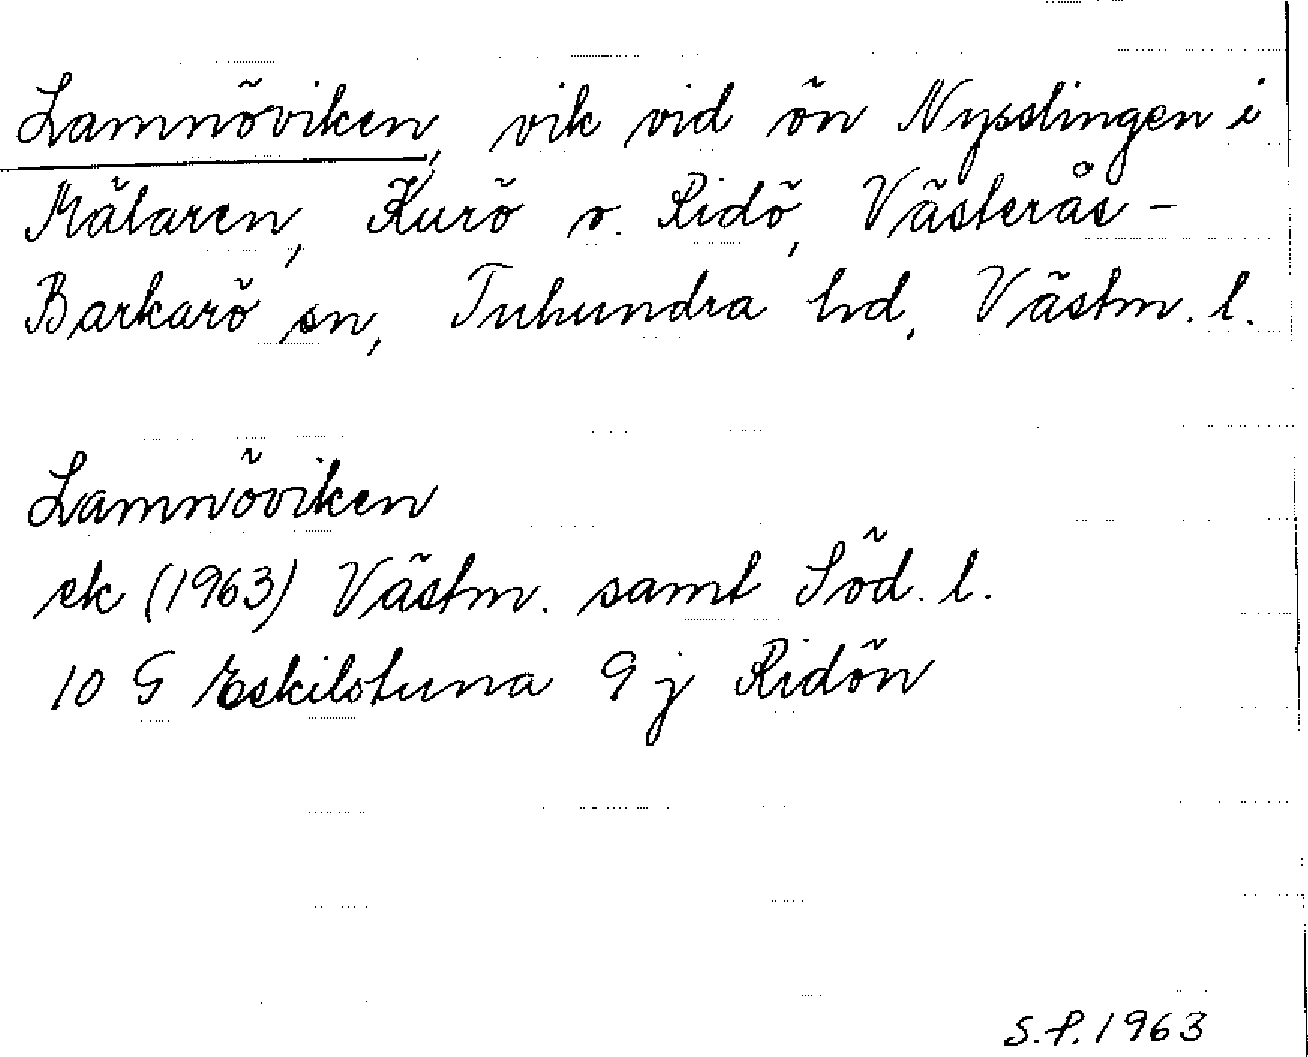 Lamnöviken, vik vid ön Nysslingen i
Mälaren, Kurö o. Ridö, Västerås-
Barkarö sn, Tuhundra hd, Västm. l.
Lamnöviken
ek (1963) Västm. samt Söd. l.
10 G Eskilstuna 9 j Ridön
S.P. 1963